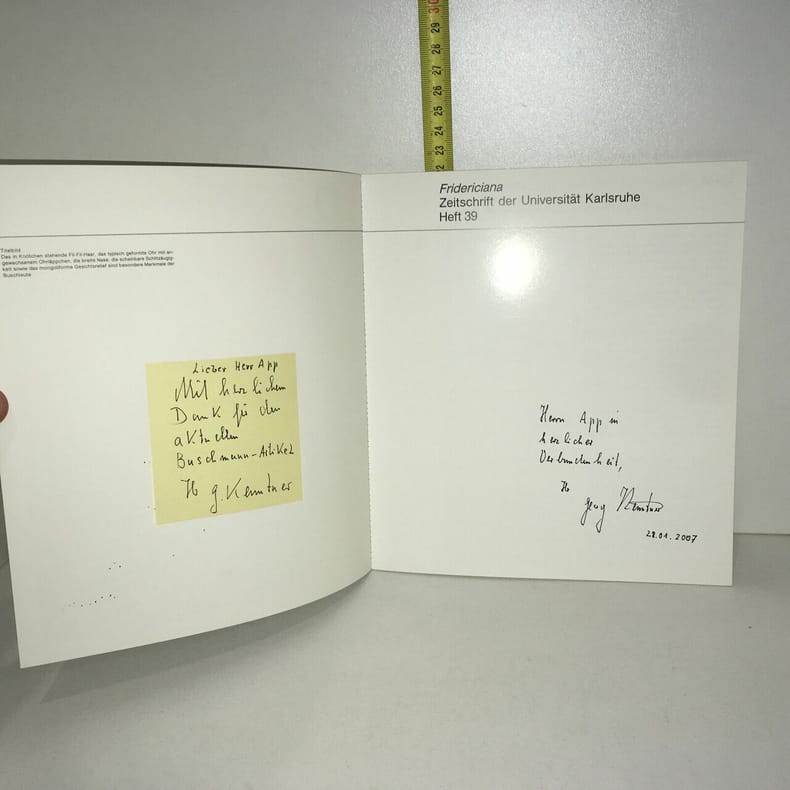 Titelbild
Das in Knötchen stehende Fil-Fil-Haar, das typisch geformte Ohr mit an-
gewachsenem Ohrläppchen, die breite Nase, die scheinbare Schlitzäugig-
keit sowie das mongoliforme Gesichtsrelief sind besondere Merkmale der
Buschleute
Lieber Herr App
Mit herzlichem
Dank für den
aktuellen
Buschmann-Artikel
Ihr G. Kenntner
Fridericiana
Zeitschrift der Universität Karlsruhe
Heft 39
Herrn App in
herzlicher
Verbundenheit,
Ihr
Georg Kenntner
28.01.2007
22 23 24 25 26 27 28 29 30